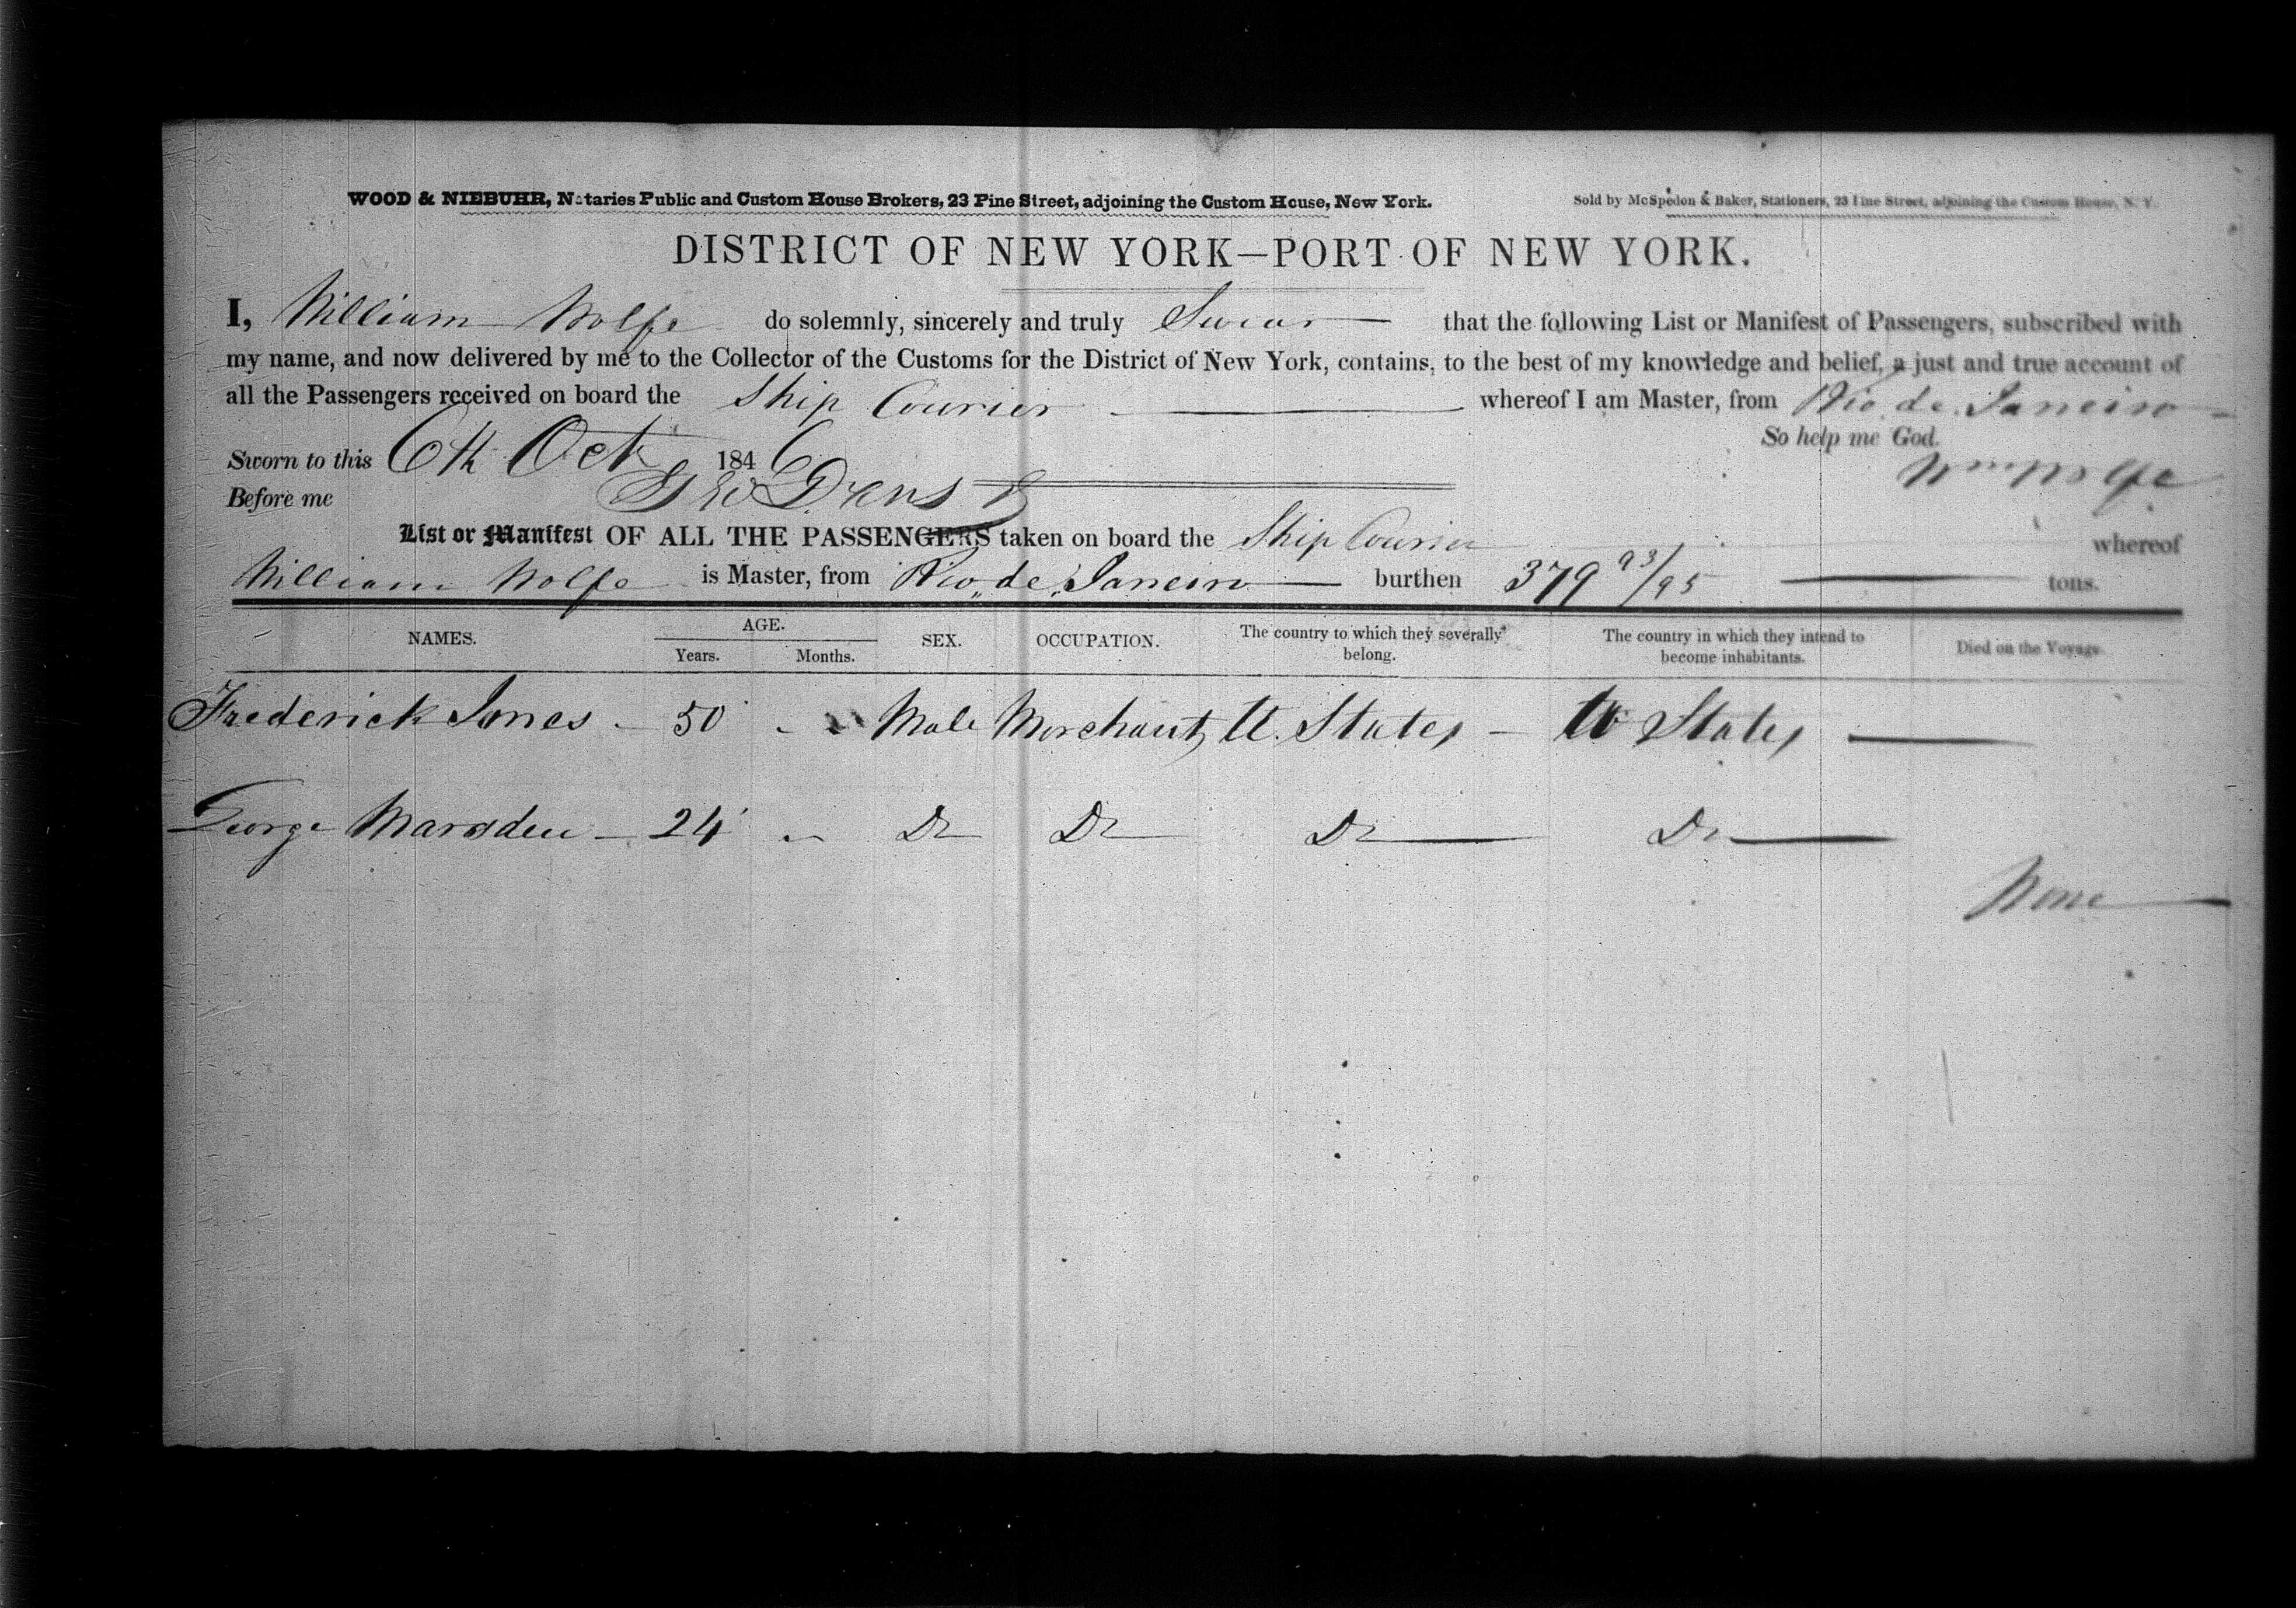 WOOD & NIEBUHR, Notaries Public and Custom House Brokers, 23 Pine Street, adjoining the Custom House, New York.
Sold by McSpedon & Baker, Stationers, 23 Pine Street, adjoining the Custom House, N. Y.
DISTRICT OF NEW YORK—PORT OF NEW YORK.
I, William Wolfe do solemnly, sincerely and truly Swear that the following List or Manifest of Passengers, subscribed with
my name, and now delivered by me to the Collector of the Customs for the District of New York, contains, to the best of my knowledge and belief, a just and true account of
all the Passengers received on board the Ship Courier whereof I am Master, from Rio de Janeiro
So help me God.
Sworn to this 6th Oct 1846
Wm Wolfe
Before me
List or Manifest OF ALL THE PASSENGERS taken on board the Ship Courier whereof
William Wolfe is Master, from Rio de Janeiro burthen 379 93/95 tons.
NAMES. AGE. Years. Months. SEX. OCCUPATION. The country to which they severally belong. The country in which they intend to become inhabitants. Died on the Voyage.
Frederick Jones - 50 - Male Merchant U. States - U States
George Marsden - 24 - Do Do Do Do
None